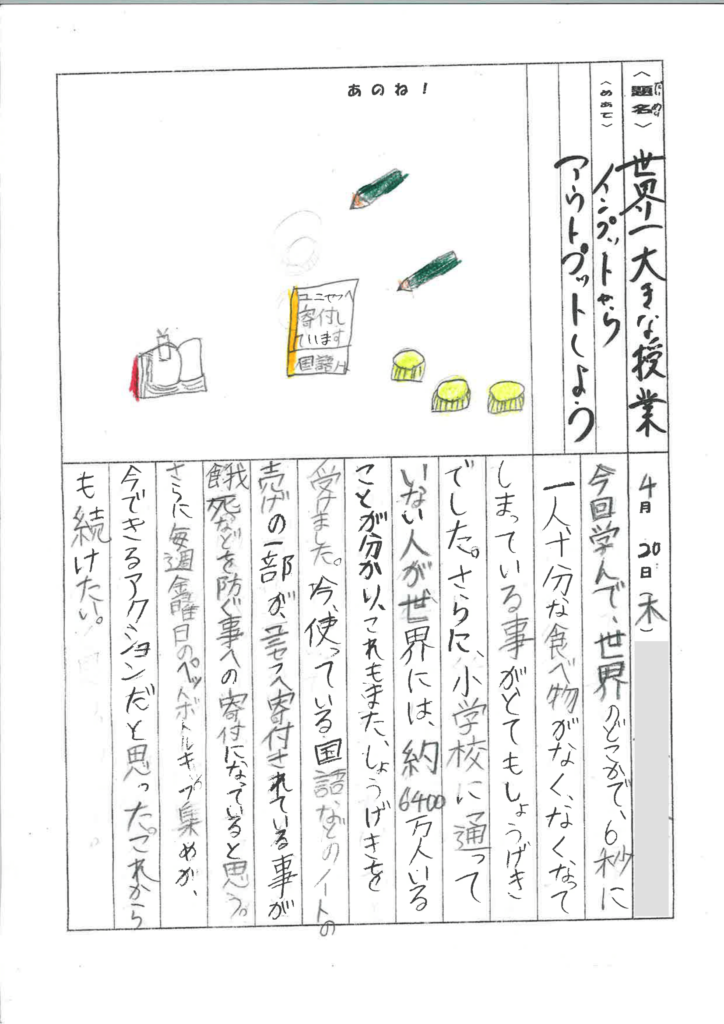 〈題名〉 世界一大きな授業
だいめい
〈めあて〉 インプットから
アウトプットしよう
あのね！
ユニセフへ
寄付し
ています
国語ノ
4月 20日（木）
今回学んで、世界のどこかで、6秒に
一人、十分な食べ物がなく、なくなって
しまっている事がとてもしょうげき
でした。さらに、小学校に通って
いない人が世界には、約6400万人いる
ことが分かり、これもまた、しょうげきを
受けました。今、使っている国語などのノートの
売上げの一部が、ユニセフへ寄付されている事が
餓死などを防ぐ事への寄付になっていると思う。
さらに毎週金曜日のペットボトルキャップ集めが、
今できるアクションだと思った。これから
も続けたい。